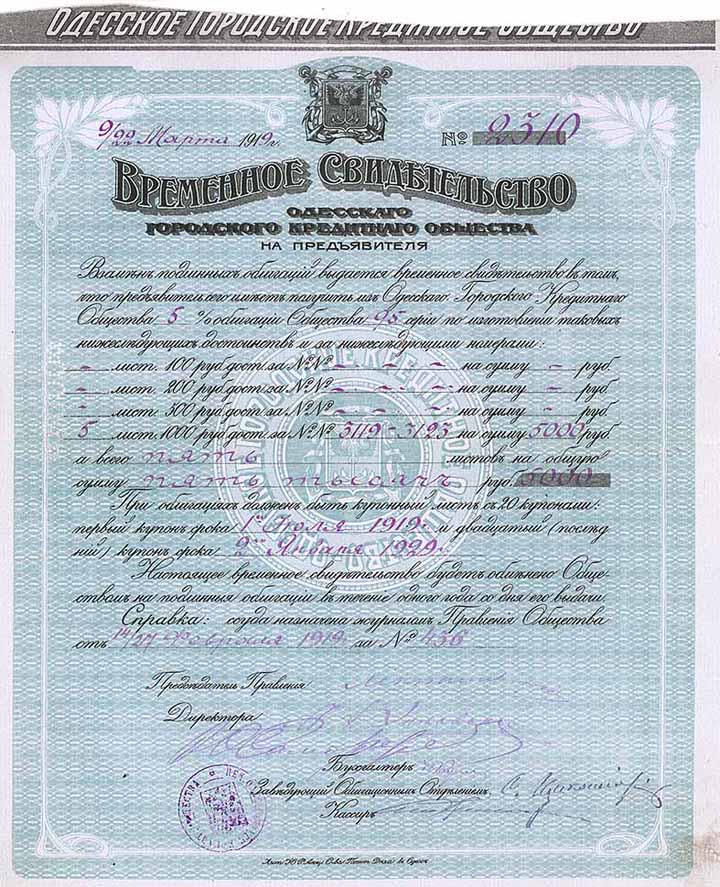 ОДЕССКОЕ ГОРОДСКОЕ КРЕДИТНОЕ ОБЩЕСТВО
9/22 Марта 1919 г.
№ 2310
ВРЕМЕННОЕ СВИДѢТЕЛЬСТВО
ОДЕССКАГО
ГОРОДСКОГО КРЕДИТНАГО ОБЩЕСТВА
НА ПРЕДЪЯВИТЕЛЯ
Взамѣнъ подлинныхъ облигацій выдается временное свидѣтельство въ томъ,
что предъявитель сего имѣетъ получить изъ Одесскаго Городского Кредитнаго
Общества 5 % облигаціи Общества 95 серіи по изготовленіи таковыхъ
нижеслѣдующихъ достоинствъ и за нижеслѣдующими номерами:
– лист. 100 руб. дост. за №№ – – – – на сумму – руб.
– лист. 200 руб. дост. за №№ – – – – на сумму – руб.
– лист. 500 руб. дост. за №№ – – – – на сумму – руб.
5 лист. 1000 руб. дост. за №№ 3119 – 3123 на сумму 5000 руб.
а всего пять листовъ на общую
сумму пять тысячъ руб. 5000
При облигаціяхъ долженъ быть купонный листъ съ 20 купонами:
первый купонъ срока 1го Іюля 1919 г. и двадцатый (послѣд
ній) купонъ срока 2го Января 1929 г.
Настоящее временное свидѣтельство будетъ обмѣнено Обще-
ствомъ на подлинныя облигаціи въ теченіе одного года со дня его выдачи.
Справка: ссуда назначена журналомъ Правленія Общества
отъ 14/27 Февраля 1919 г. за № 436
Предсѣдатель Правленія
Директора
Бухгалтеръ
Завѣдующій Облигаціоннымъ Отдѣленіемъ
Кассиръ